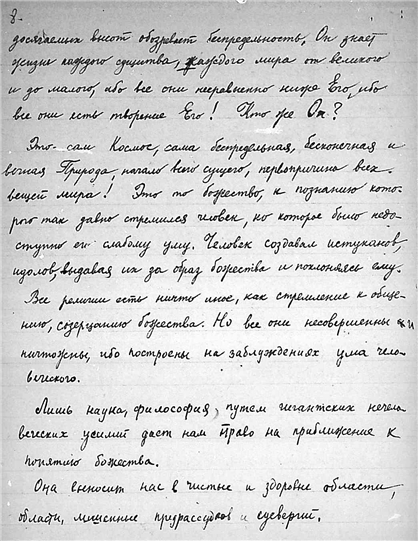 8.
досягаемых высот обозревает беспредельность. Он знает
жизнь каждого существа, каждого мира от великого
и до малого, ибо все они неравненно ниже Его, ибо
все они есть творение Его! Кто же Он?
Это сам Космос, сама беспредельная, бесконечная и
вечная Природа, начало всего сущего, первопричина всех
вещей мира! Это то божество, к познанию кото-
рого так давно стремился человек, но которое было недо-
ступно его слабому уму. Человек создавал истуканов,
идолов, выдавая их за образ божества и поклоняясь ему.
Все религии есть ничто иное, как стремление к обще-
нию, созерцанию божества. Но все они несовершенны и
ничтожны, ибо построены на заблуждениях ума чело-
веческого.
Лишь наука, философия, путем гигантских нечело
веческих усилий даст нам право на приближение к
понятию божества.
Она выносит нас в чистые и здоровые области,
области, лишенные предрассудков и суеверий.